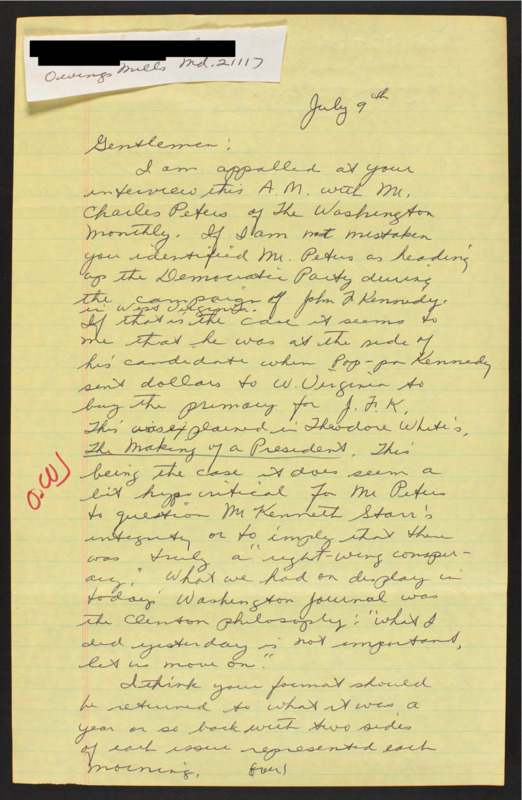 Owings Mills Md. 21117
July 9th
Gentlemen:
I am appalled at your
interview this A.M. with Mr.
Charles Peters of The Washington
Monthly. If I am not mistaken
you identified Mr. Peters as heading
up the Democratic Party during
the campaign of John F Kennedy.
in West Virginia.
If that is the case it seems to
me that he was at the side of
his candidate when Pop-pa Kennedy
sent dollars to W. Virginia to
buy the primary for J.F.K.
This was explained in Theodore White's,
The Making of a President. This
being the case it does seem a
bit hypocritical for Mr Peters
to question Mr Kenneth Starr's
integrity or to imply that there
was truly a "right-wing conspir-
acy." What we had on display in
today's Washington Journal was
the Clinton philosophy: "What I
did yesterday is not important,
let us move on."
I think your format should
be returned to what it was a
year or so back with two sides
of each issue represented each
morning. (over)